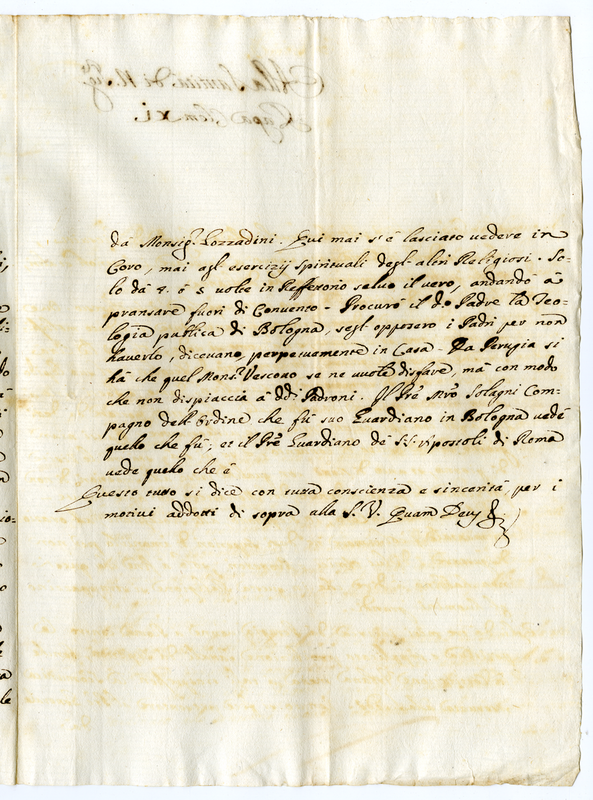 da Monsig.r Pozzadini. Qui mai s'è lasciato vedere in
Coro, mai agl esercizij spirituali degl altri Religiosi. So-
lo da 4. ò 5 volte in Refferorio salvo il vero, andando à
pransare fuori di Convento. Procurò il do. Padre la Teo-
logia publica di Bologna, segl opposero i Padri per non
haverlo, dicevano, perpetuamente in Casa. Da Perugia si
hà che quel Mons.r Vescovo se ne vuole disfare, mà con modo
che non dispiaccia à ddi Padroni. Il Pre Mro Solagni Com-
pagno dell Ordine che fù suo Guardiano in Bologna vede
quello che fù; et il Pre Guardiano de SS. Apostoli di Roma
vede quello che è
Questo tutto si dice con tutta conscienza e sincerità, per i
motivi addotti di sopra alla S. V. Quam Deus